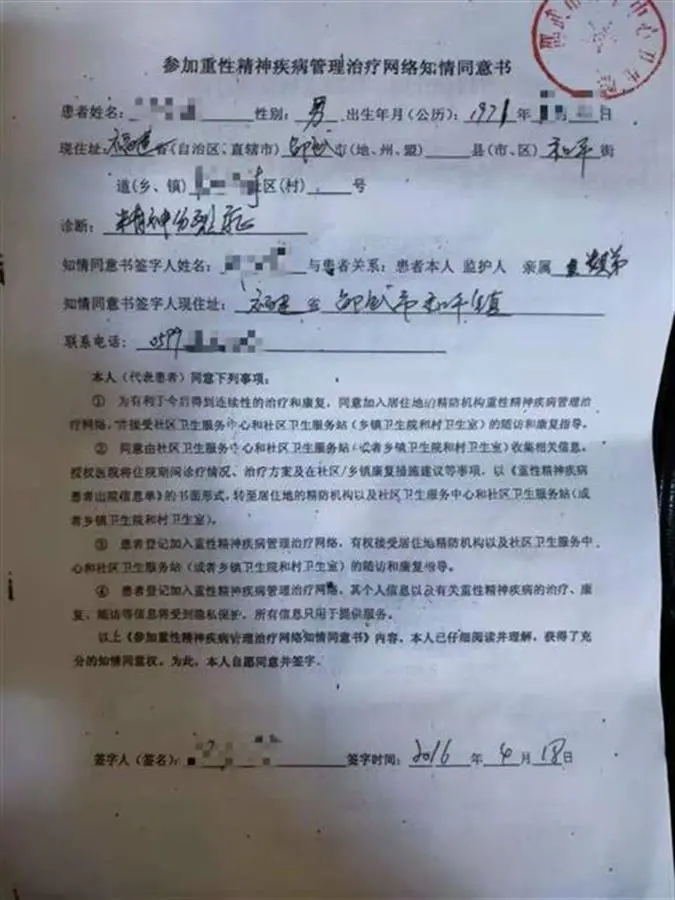 参加重性精神疾病管理治疗网络知情同意书
患者姓名: 性别: 男 出生年月(公历): 1971 年 日
现住址: 福建 省(自治区、直辖市) 邵武 市(地、州、盟) 县(市、区) 和平 街
道(乡、镇) 社区(村) 号
诊断: 精神分裂症
知情同意书签字人姓名: 与患者关系: 患者本人 监护人 亲属
知情同意书签字人现住址: 福建省邵武市和平镇
联系电话: 0599
本人(代表患者)同意下列事项:
① 为有利于今后得到连续性的治疗和康复,同意加入居住地的精防机构重性精神疾病管理治
疗网络,并接受社区卫生服务中心和社区卫生服务站(乡镇卫生院和村卫生室)的随访和康复指导。
② 同意由社区卫生服务中心和社区卫生服务站(或者乡镇卫生院和村卫生室)收集相关信息,
授权医院将住院期间诊疗情况、治疗方案及在社区/乡镇康复措施建议等事项,以《重性精神疾病
患者出院信息单》的书面形式,转至居住地的精防机构以及社区卫生服务中心和社区卫生服务站(或
者乡镇卫生院和村卫生室)。
③ 患者登记加入重性精神疾病管理治疗网络,有权接受居住地精防机构以及社区卫生服务中
心和社区卫生服务站(或者乡镇卫生院和村卫生室)的随访和康复指导。
④ 患者登记加入重性精神疾病管理治疗网络,其个人信息以及有关重性精神疾病的治疗、康
复、随访等信息将受到隐私保护,所有信息只用于提供服务。
以上《参加重性精神疾病管理治疗网络知情同意书》内容,本人已仔细阅读并理解,获得了充
分的知情同意权。为此,本人自愿同意并签字。
签字人(签名): 签字时间: 2016 年 4 月 18 日